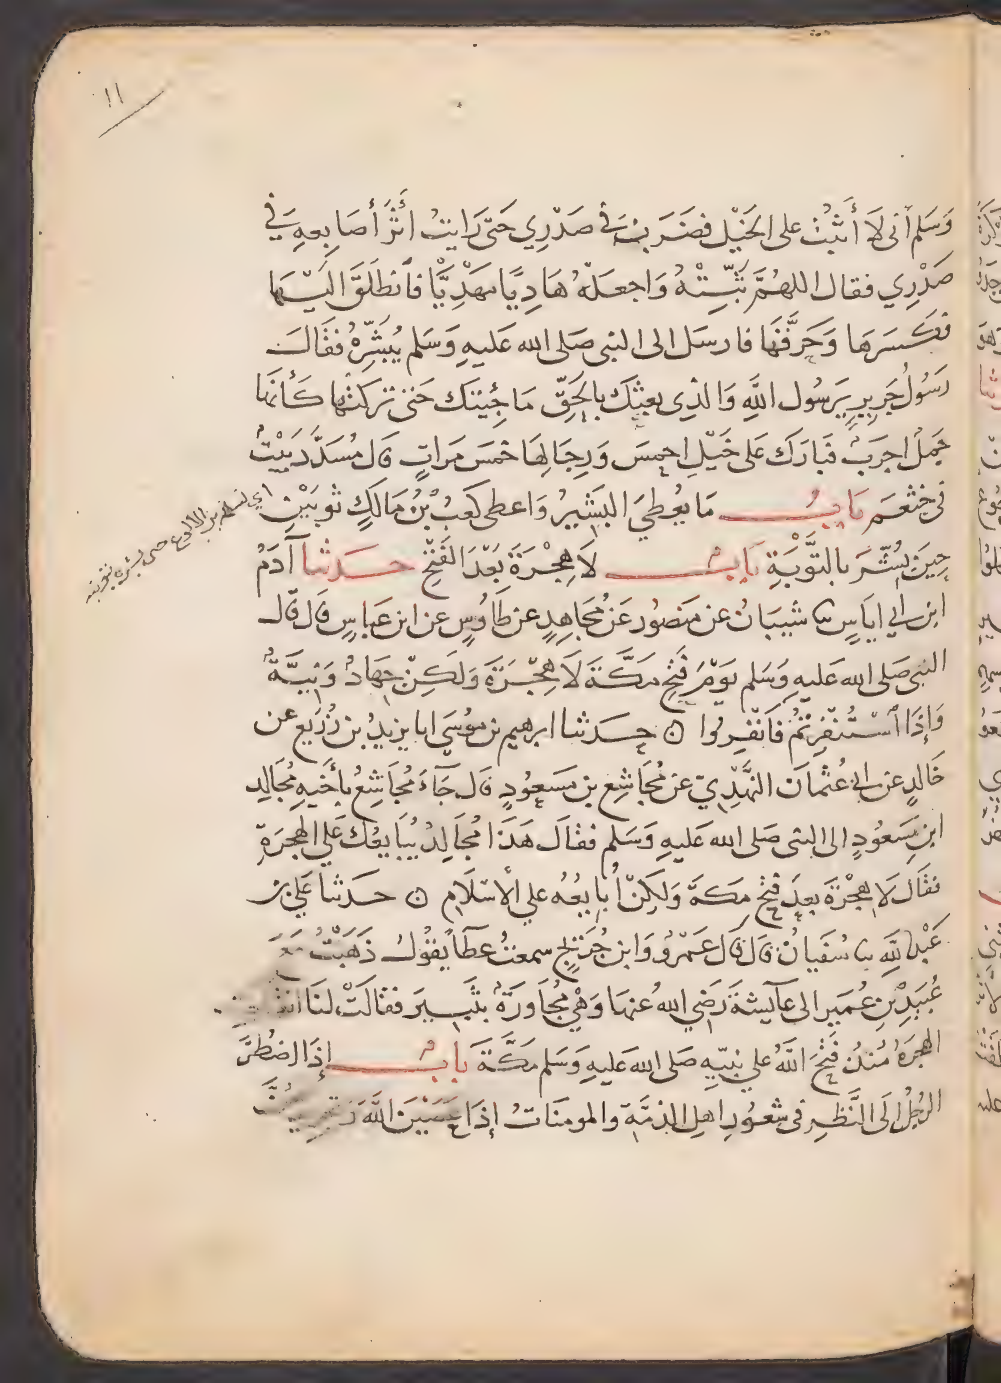 ١١
وَسَلم أنى لَا أَثبُتُ على الخَيْل فضَرَبَ في صَدْرِي حَتى رَايتُ أثَرَ أصَابِعهِ في
صَدْرِي فقال اللهُمَّ ثَبِّتْهُ وَاجعَلْهُ هَادِيًا مَهْدِيًّا فانطلَقَ اليْهَا
فكسَرهَا وَحَرَّقَهَا فارسَل الى النبى صَلى الله عَليهِ وَسَلم يُبَشِّرهُ فقَال
رَسُولُ جَرِيرٍ يَرَسُول اللهِ وَالذِى بعثكَ بالحَقّ مَا جِيتك حَتى تركتُها كَأنهَا
جَمَلٌ اجرَبُ فبَارَكَ عَلى خَيْلِ احمسَ وَرِجَالِهَا خمسَ مَراتٍ قَال مُسَدَّد بَيْتٌ
فى خثعَمَ بَابُ مَا يُعْطَى البَشِيرُ وَاعطى كَعْبُ بْنُ مَالكٍ ثوبَيْنِ
اي لسلمة بن الاكوع حين بشره بتوبته
حِينَ بُشِّرَ بالتَّوْبَةِ بَابُ لَا هِجْرَةَ بَعْدَ الفَتْحِ حدثنا آدَمُ
ابن ابى ايَاسٍ ثنا شيبَانُ عن مَنصُور عَنْ مُجَاهِدٍ عن طَاوُسٍ عن ابن عَباسٍ قَال قَال
النبى صَلى الله عَليهِ وَسَلم يَوْمَ فَتْحِ مَكَّةَ لَا هِجْرَةَ وَلَكِنْ جِهَادٌ وَنِيَّةٌ
وَإذَا اسْتُنْفِرْتُمْ فَانْفِرُوا ن حدثنا ابرهيم بن مُوسَى انا يزيدُ بن زُرَيع عن
خَالدٍ عن ابى عُثمَان النهْدِيّ عن مُجَاشِعِ بن مَسعُودٍ قَال جَآءَ مُجَاشِعُ بأَخِيهِ مُجَالِدِ
ابن مَسعُودٍ الى النبى صَلى الله عَليهِ وَسَلم فقالَ هَذَا مُجَالِدٌ يُبَايعُكَ عَلى الهِجرَةِ
فقَال لَا هِجْرَةَ بعدَ فتحِ مكةَ وَلَكِنْ أُبَايِعُهُ على الْاسْلَامِ ن حدثنا عَلى بن
عَبْدِ اللهِ ثنا سُفيَانُ قَال قَال عَمْرٌو وَابن جُرَيْجٍ سمعتُ عطآءً يَقُولُ ذَهَبْتُ مَعَ
عُبَيْدِ بْنِ عُمَيرٍ الى عآيشةَ رَضِي اللهُ عنهَا وَهْيَ مُجَاوِرَةٌ بثَبِيرَ فقالتْ لنَا انقطعت
الهِجرَةُ مُنذُ فَتَحَ اللهُ على نبيّهِ صَلى الله عَليهِ وَسَلم مَكَّةَ بَابُ إذَا اضطُرَّ
الرجُلُ إلَى النَّظَرِ فى شعُورِ اهلِ الذمَّةِ والمومنَاتُ إذَا عَصَيْنَ اللهَ وتجريدهنَّ